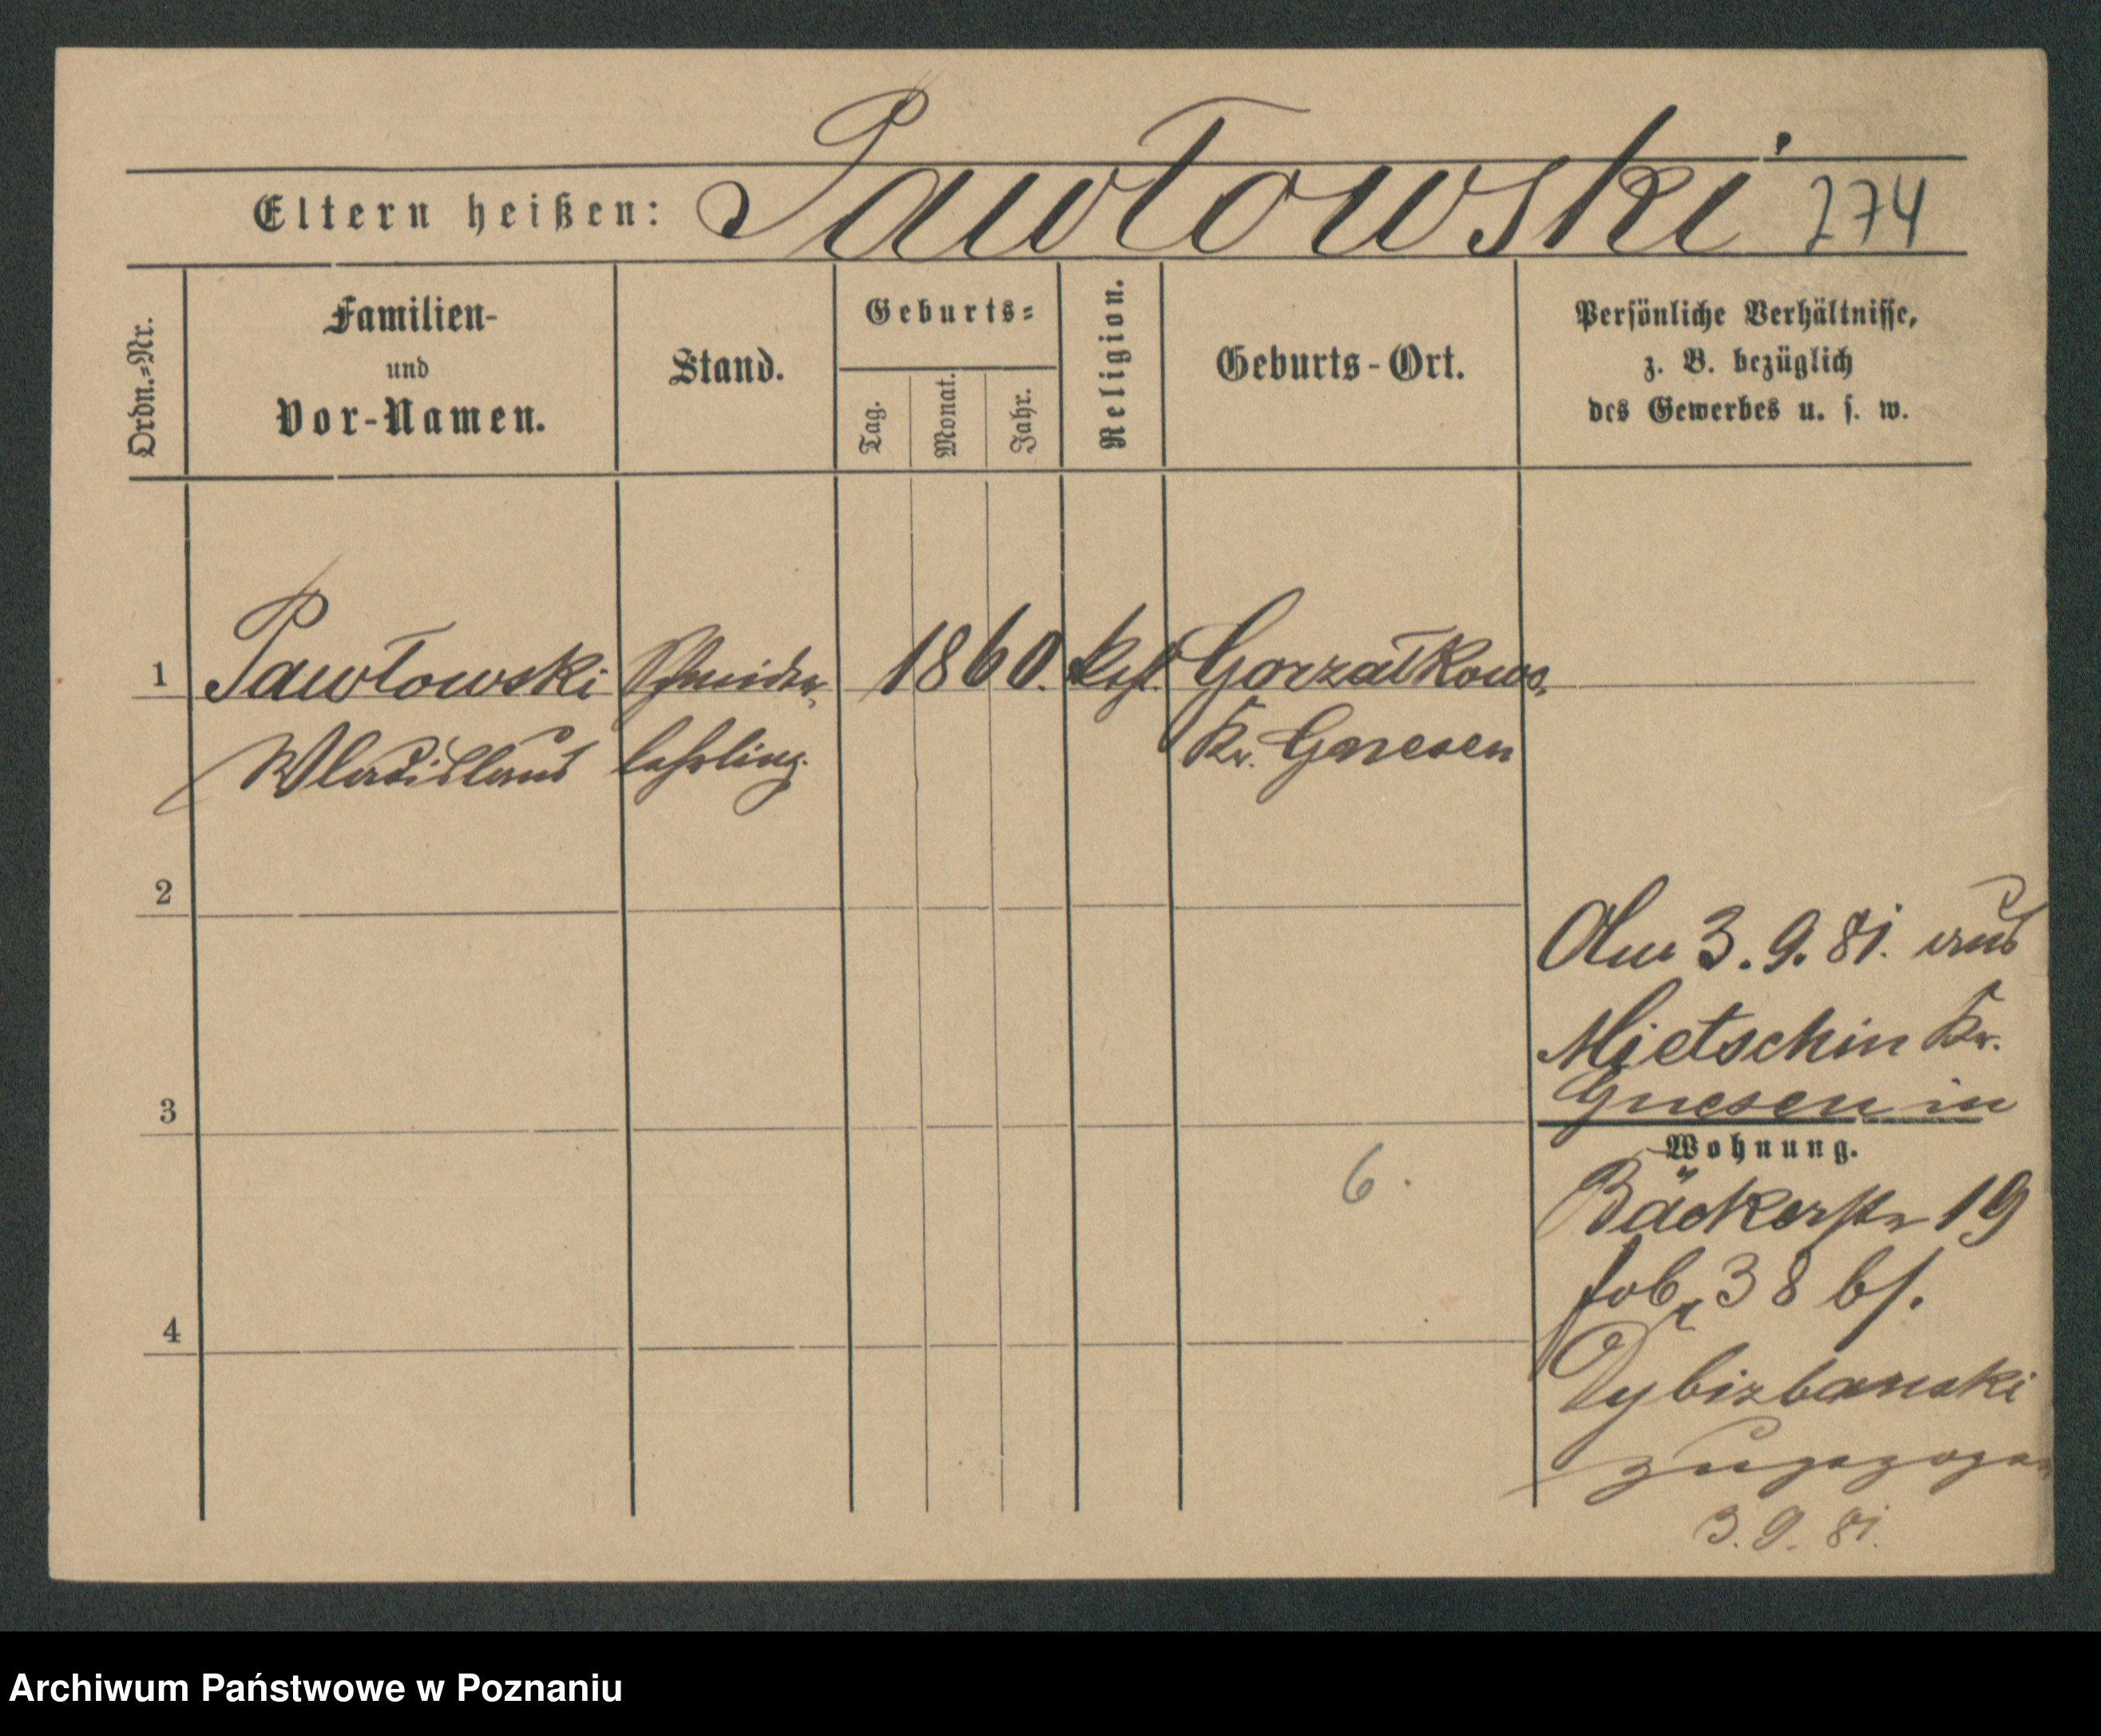 Eltern heißen: Pawłowski 274
Ordn.-Nr.
Familien-
und
Vor-Namen.
Stand.
Geburts-
Tag.
Monat.
Jahr.
Religion.
Geburts-Ort.
Persönliche Verhältnisse,
z. B. bezüglich
des Gewerbes u. s. w.
1 Pawłowski Schneider- 1860. kath. Gorzałkowo,
Wladislaus lehrling. Kr. Gnesen
2
Am 3. 9. 81. aus
Mietschin Kr.
Gnesen in
3
Wohnung.
6.
Bäckerstr 19
38 bs.
4
Dybizbanski
zugezogen
3. 9. 81.
Archiwum Państwowe w Poznaniu